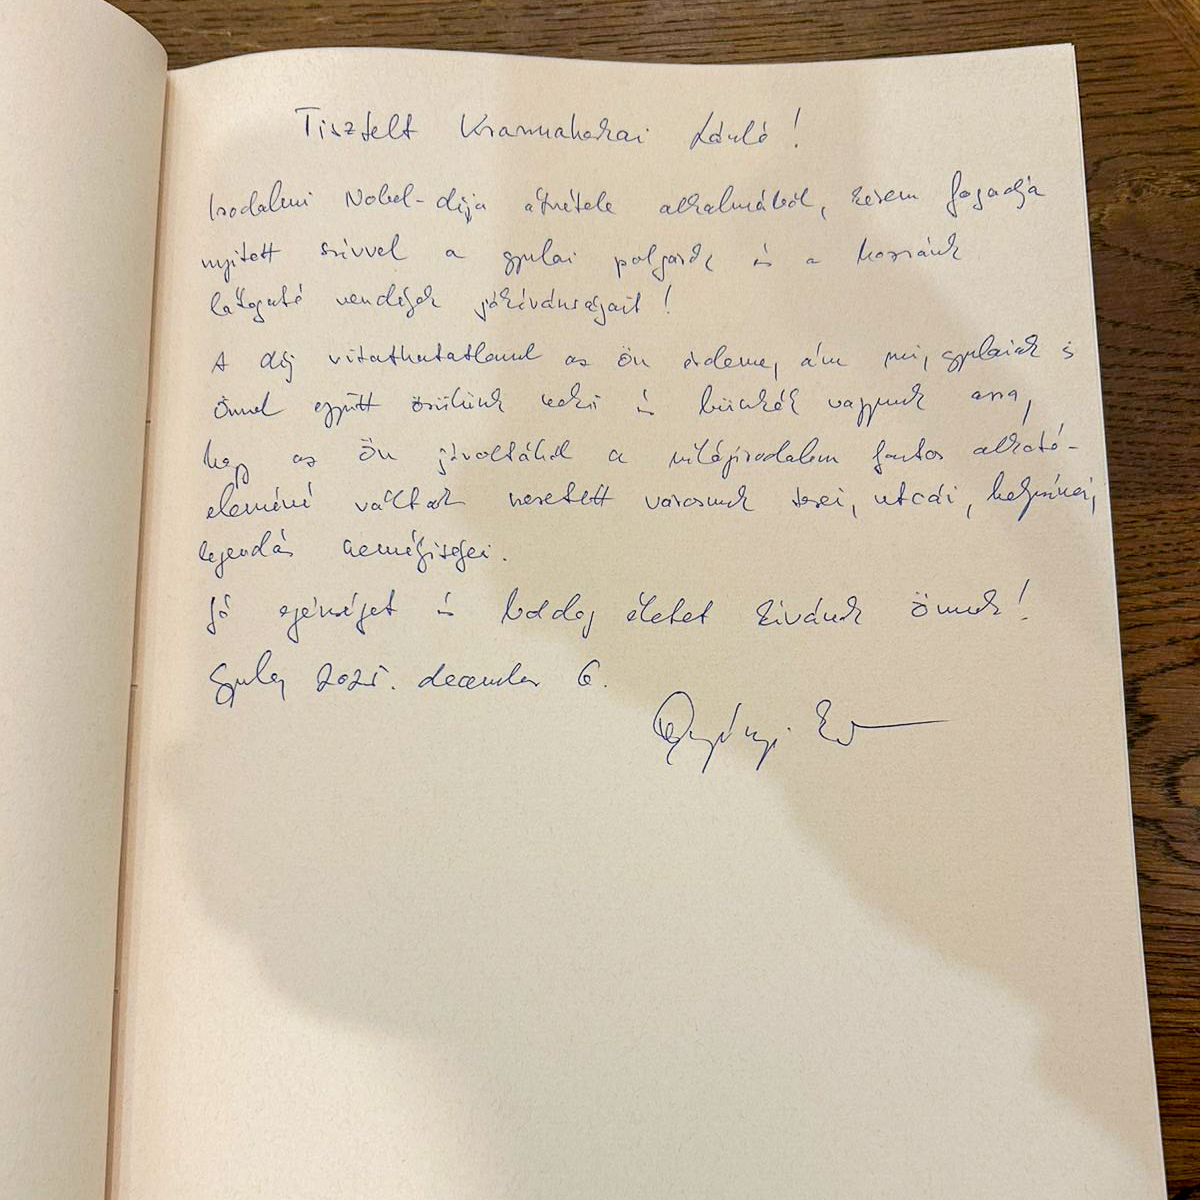 Tisztelt Krasznahorkai László!
Irodalmi Nobel-díja átvétele alkalmából, kérem fogadja
nyitott szívvel a gyulai polgárok és a hozzánk
látogató vendégek jókívánságait!
A díj vitathatatlanul az Ön érdeme, ám mi, gyulaiak is
Önnel együtt örülünk neki és büszkék vagyunk arra,
hogy az Ön jóvoltából a világirodalom fontos alkotó-
elemévé váltak szeretett városunk terei, utcái, helyszínei,
legendás személyiségei.
Jó egészséget és boldog életet kívánok Önnek!
Gyula, 2025. december 6.